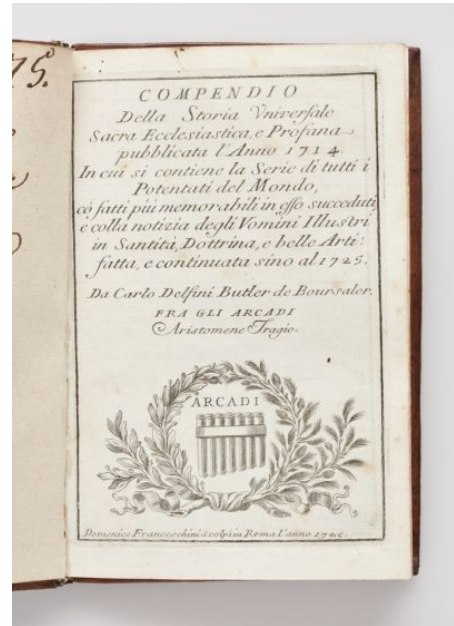 75.
COMPENDIO
Della Storia Vniversale
Sacra Ecclesiastica, e Profana
pubblicata l'Anno 1714.
In cui si contiene la Serie di tutti i
Potentati del Mondo,
cõ fatti piu memorabili in esso succeduti,
e colla notizia degli Vomini Illustri
in Santità, Dottrina, e belle Arti:
fatta, e continuata sino al 1725.
Da Carlo Delfini Butler de Boursaler,
FRA GLI ARCADI
Aristomene Tragio.
ARCADI
Domenico Franceschini Scolpi in Roma l'anno 1725.